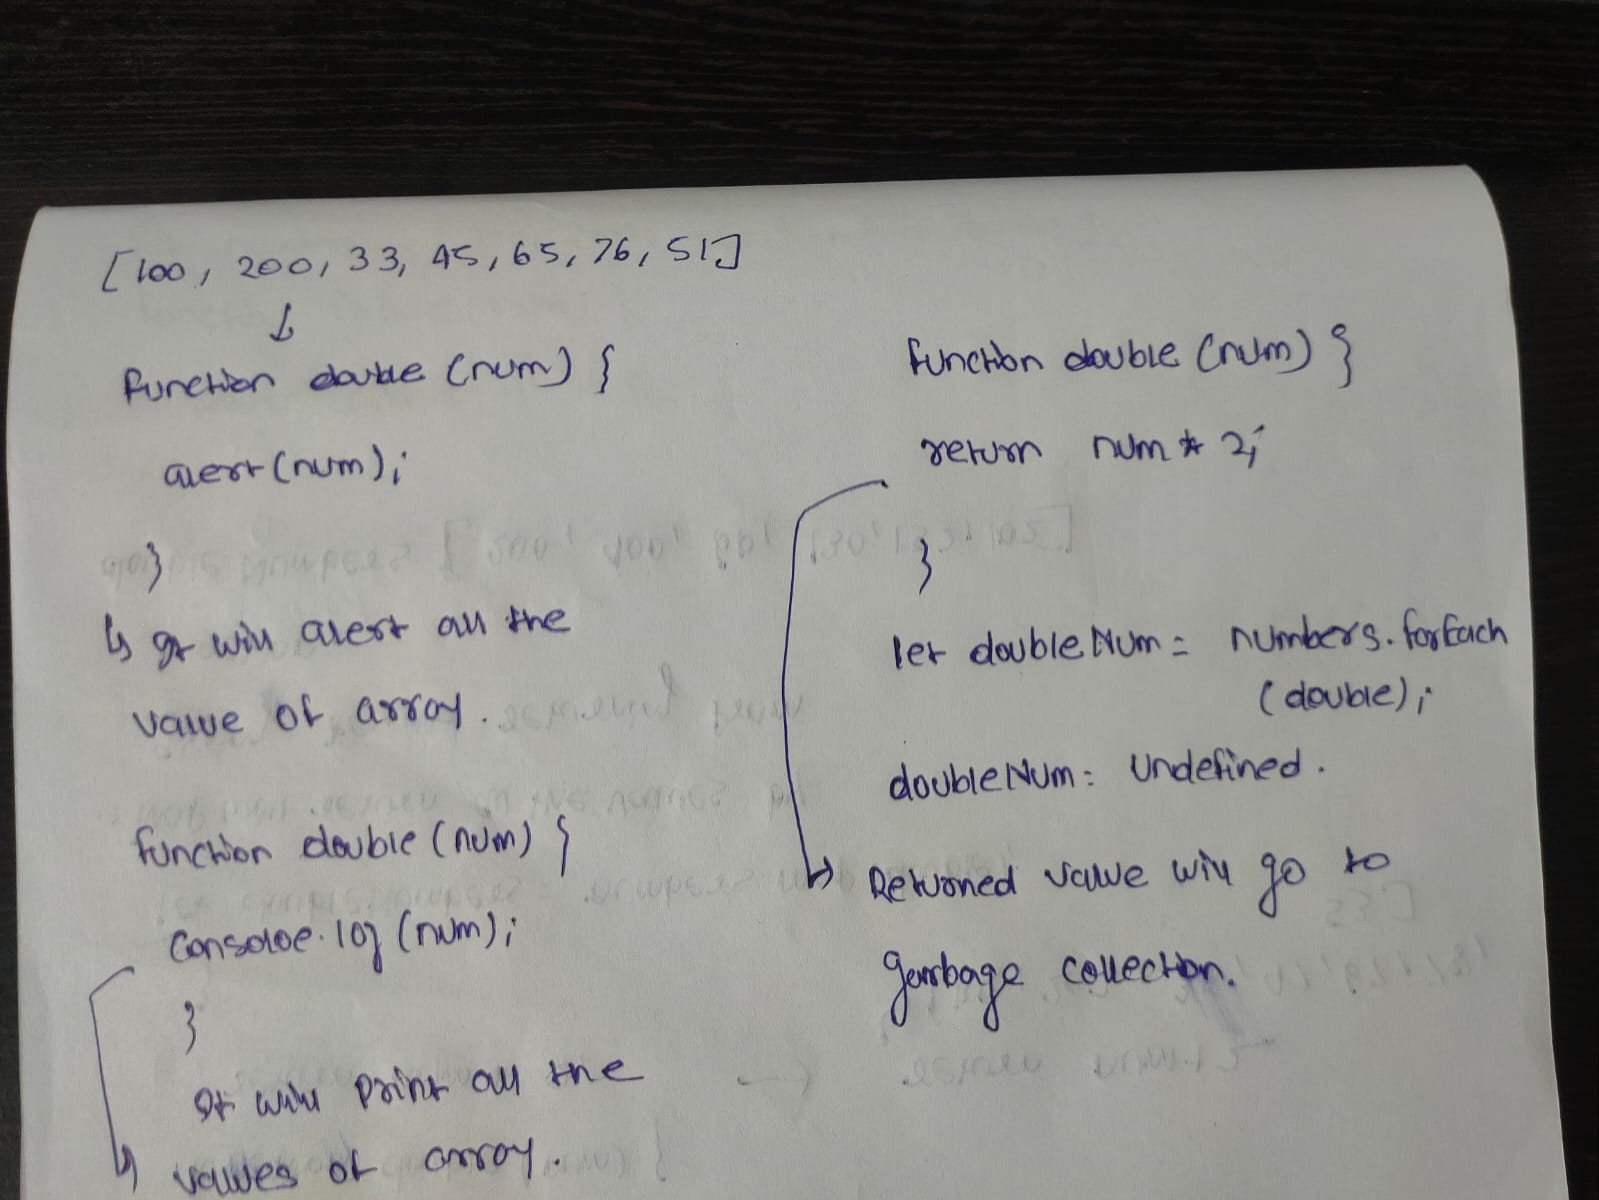 [100, 200, 33, 45, 65, 76, 51]
↓
function double (num) {
alert(num);
}
↳ It will alert all the
value of array.
function double (num) {
Console.log (num);
}
It will print all the
values of array.
function double (num) }
return num * 2;
}
let doubleNum = numbers.forEach
(double);
doubleNum = Undefined.
Returned value will go to
garbage collection.